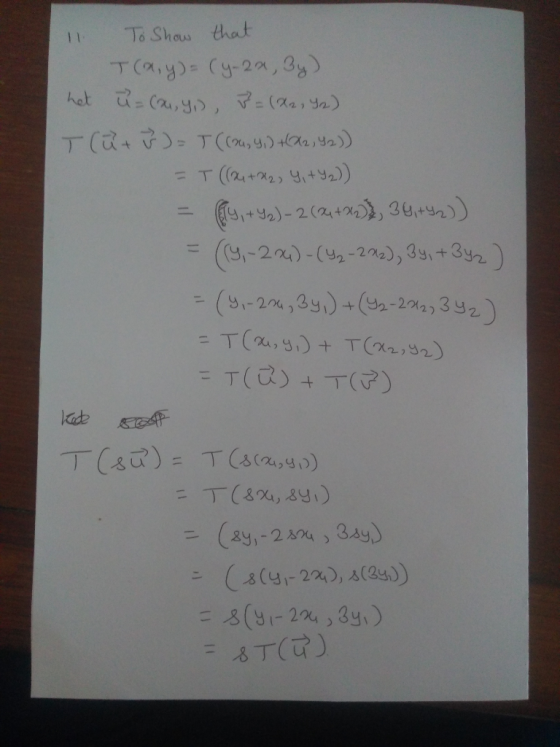 11. To Show that
T(x,y) = (y-2x, 3y)
Let u⃗ = (x₁,y₁), v⃗ = (x₂,y₂)
T(u⃗ + v⃗) = T((x₁,y₁)+(x₂,y₂))
= T((x₁+x₂, y₁+y₂))
= ((y₁+y₂)-2(x₁+x₂), 3(y₁+y₂))
= ((y₁-2x₁)-(y₂-2x₂), 3y₁+3y₂)
= (y₁-2x₁, 3y₁)+(y₂-2x₂, 3y₂)
= T(x₁,y₁) + T(x₂,y₂)
= T(u⃗) + T(v⃗)
T(su⃗) = T(s(x₁,y₁))
= T(sx₁, sy₁)
= (sy₁-2sx₁, 3sy₁)
= (s(y₁-2x₁), s(3y₁))
= s(y₁-2x₁, 3y₁)
= sT(u⃗)